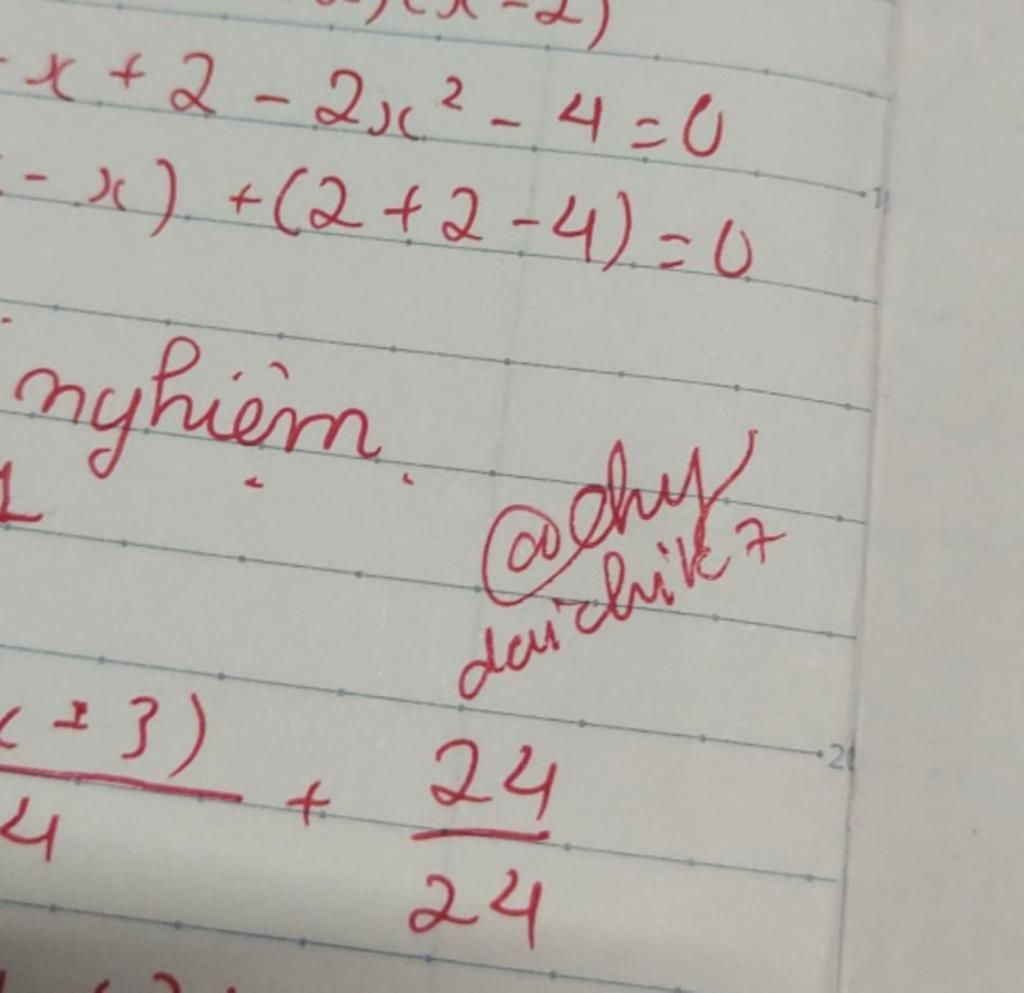 (x-2)
-x+2-2x²-4=0
-x)+(2+2-4)=0
nghiệm.
1
@chy
daichik7
±3)
4
+
24
24